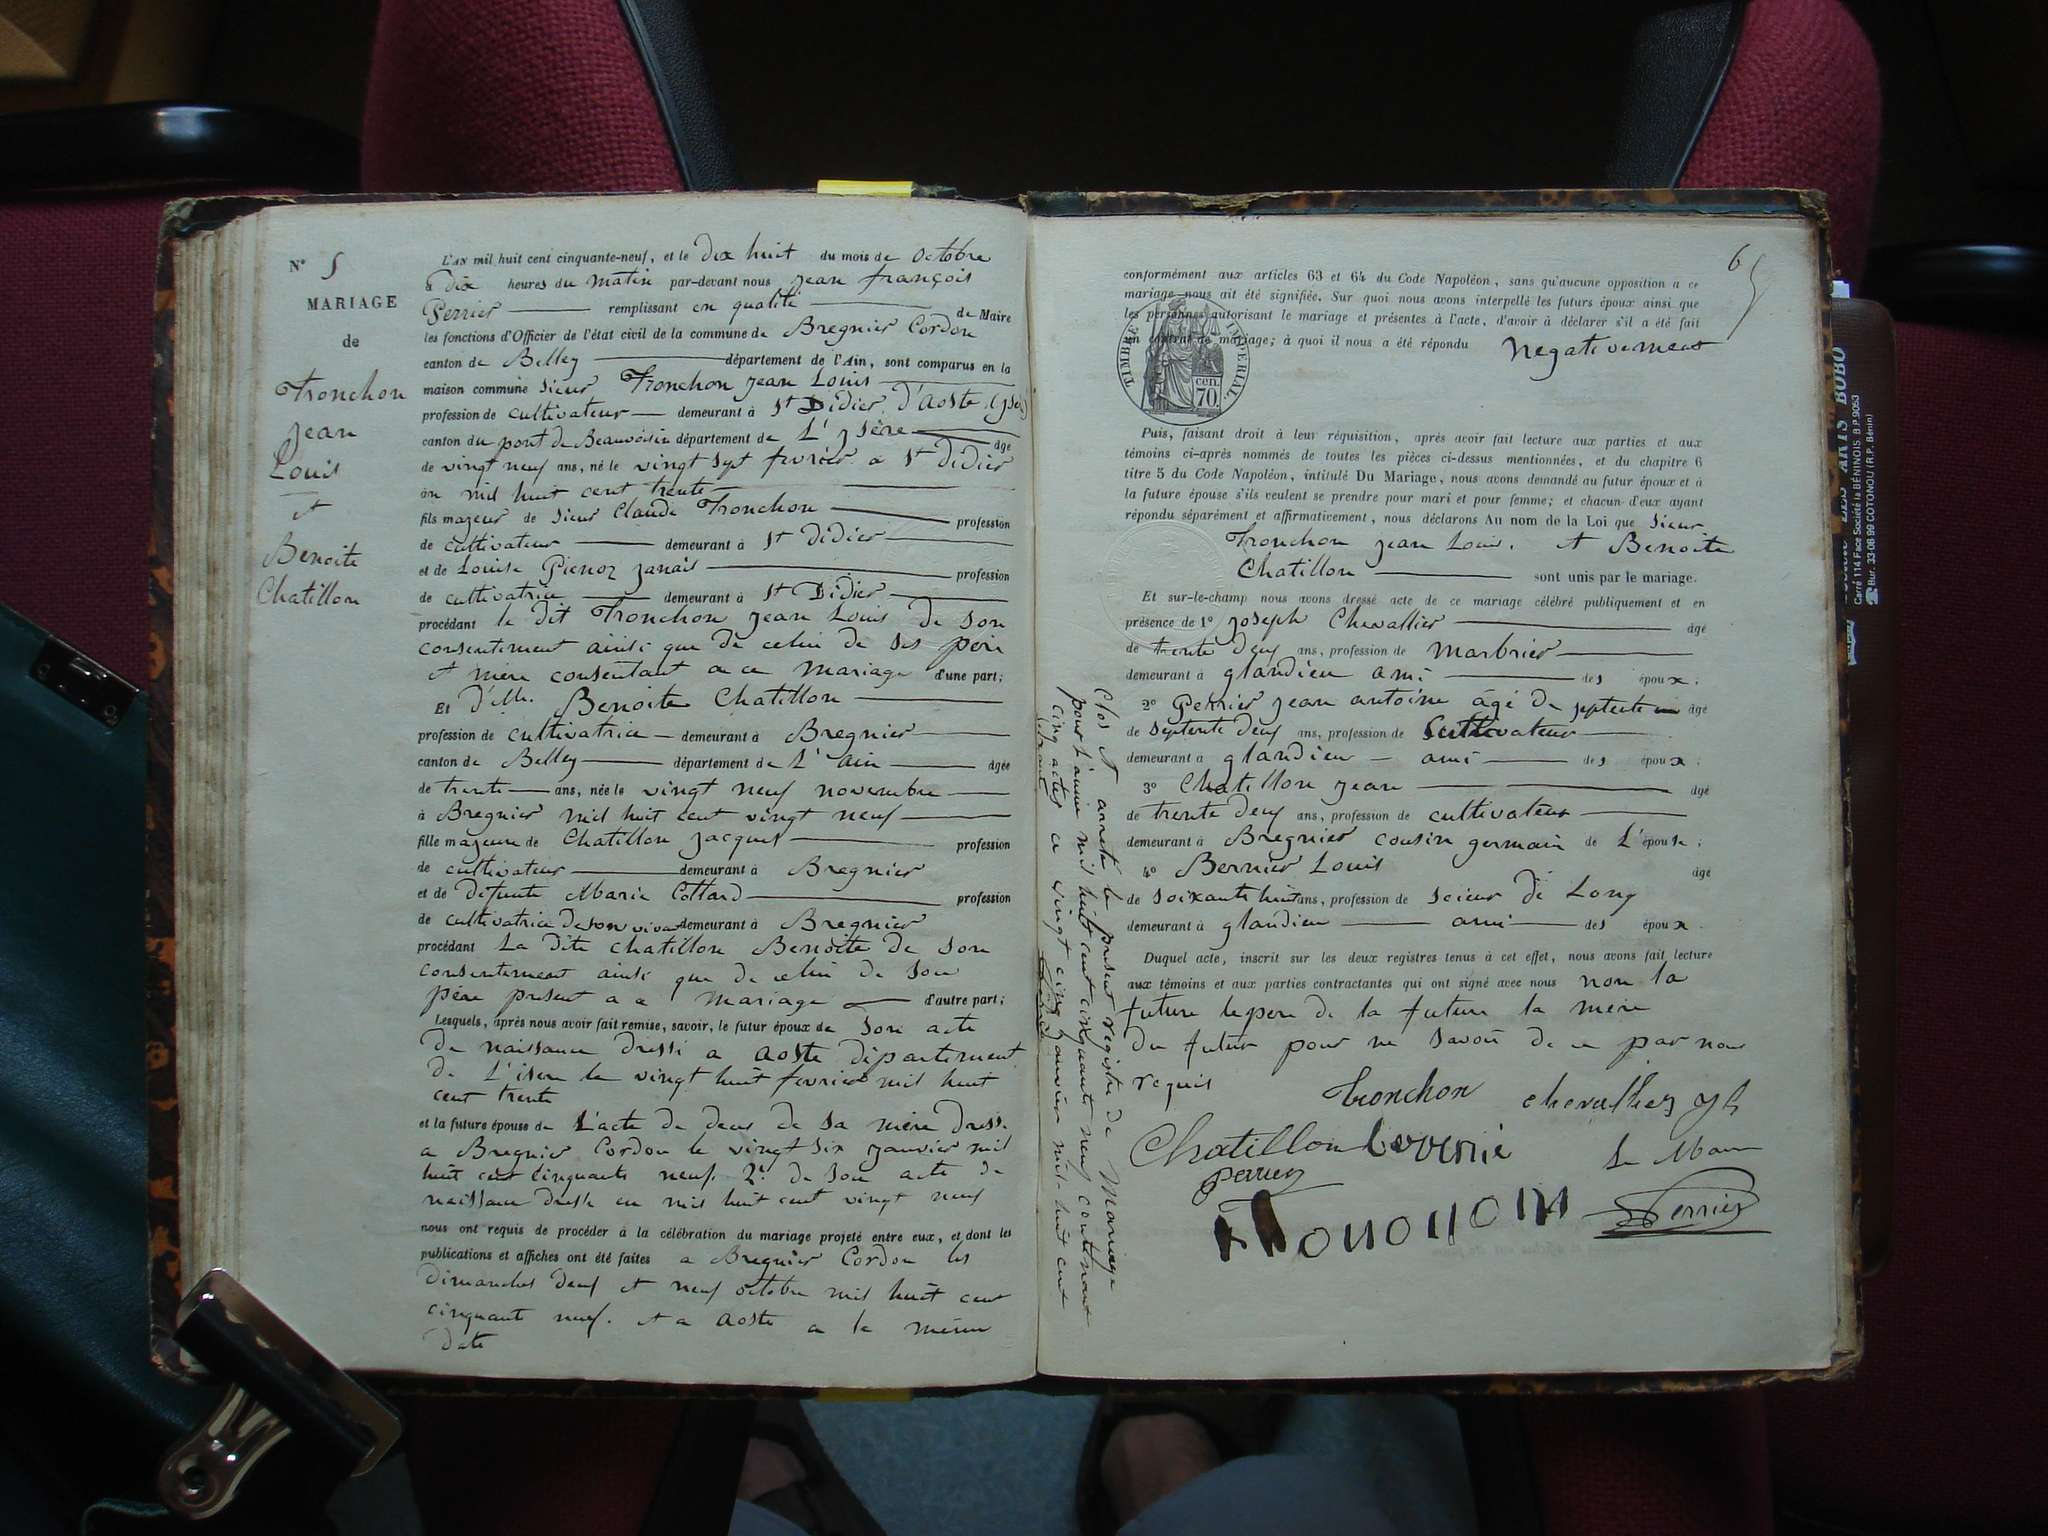 N° 5
MARIAGE
de
Tronchon
Jean
Louis
et
Benoite
Chatillon
L'AN mil huit cent cinquante-neuf, et le dix huit du mois de octobre
à dix heures du matin par-devant nous jean françois
Perrier remplissant en qualité de Maire
les fonctions d'Officier de l'état civil de la commune de Bregnier Cordon
canton de Belley département de l'Ain, sont comparus en la
maison commune sieur Tronchon jean Louis
profession de cultivateur demeurant à St Didier d'aoste (isère)
canton du pont de Beauvoisin département de L'isère âgé
de vingt neuf ans, né le vingt sept fevrier a St didier
an mil huit cent trente
fils majeur de sieur Claude Tronchon profession
de cultivateur demeurant à St didier
et de Louise Pienoz janais profession
de cultivatrice demeurant à St Didier
procédant le dit Tronchon jean Louis de son
consentement ainsi que de celui de ses père
et mère consentant a ce mariage d'une part;
Et d'elle Benoite Chatillon
profession de cultivatrice demeurant à Bregnier
canton de Belley département de L'ain âgée
de trente ans, née le vingt neuf novembre
à Bregnier mil huit cent vingt neuf
fille majeure de Chatillon jacques profession
de cultivateur demeurant à Bregnier
et de défunte Marie Cottard profession
de cultivatrice de son vivant demeurant à Bregnier
procédant La dite chatillon Benoite de son
consentement ainsi que de celui de son
père present a ce mariage d'autre part;
Lesquels, après nous avoir fait remise, savoir, le futur époux de son acte
de naissance dressé a aoste département
de L'isere le vingt huit fevrier mil huit
cent trente
et la future épouse de L'acte de deces de sa mère dressé
a Bregnier Cordon le vingt six janvier mil
huit cent cinquante neuf. 2° de son acte de
naissance dressé en mil huit cent vingt neuf
nous ont requis de procéder à la célébration du mariage projeté entre eux, et dont les
publications et affiches ont été faites a Bregnier Cordon les
dimanches deux et neuf octobre mil huit cent
cinquante neuf. et a aoste a la même
date
6
conformément aux articles 63 et 64 du Code Napoléon, sans qu'aucune opposition a ce
mariage nous ait été signifiée. Sur quoi nous avons interpellé les futurs époux ainsi que
les personnes autorisant le mariage et présentes à l'acte, d'avoir à déclarer s'il a été fait
un contrat de mariage; à quoi il nous a été répondu negativement
TIMBRE IMPERIAL
70 cen.
Puis, faisant droit à leur réquisition, après avoir fait lecture aux parties et aux
témoins ci-après nommés de toutes les pièces ci-dessus mentionnées, et du chapitre 6
titre 5 du Code Napoléon, intitulé Du Mariage, nous avons demandé au futur époux et à
la future épouse s'ils veulent se prendre pour mari et pour femme; et chacun d'eux ayant
répondu séparément et affirmativement, nous déclarons Au nom de la Loi que sieur
Tronchon jean Louis. et Benoite
Chatillon sont unis par le mariage.
Et sur-le-champ nous avons dressé acte de ce mariage célébré publiquement et en
présence de 1° joseph Chevallier âgé
de trente deux ans, profession de marbrier
demeurant à glandieu ami des époux;
2° Perrier jean antoine âgé de septente âgé
de septente deux ans, profession de cultivateur
demeurant à glandieu ami des époux;
3° Chatillon jean âgé
de trente deux ans, profession de cultivateur
demeurant à Bregnier cousin germain de L'épouse;
4° Bernier Louis âgé
de soixante huit ans, profession de scieur de Long
demeurant à glandieu ami des époux.
Duquel acte, inscrit sur les deux registres tenus à cet effet, nous avons fait lecture
aux témoins et aux parties contractantes qui ont signé avec nous non la
future le père de la future la mère
du futur pour ne savoir de ce par nous
requis
Tronchon chevallier
Chatillon Perrier
Le Maire
Perrier
Clos et arrêté le present registre de Mariage
pour L'année mil huit cent cinquante neuf contenant
cinq actes ce vingt cinq janvier mil huit cent
soixante
LES ARTS BOBO
Carré 114 Face Société la BÉNINOIS B.P.9053
Bur. 33-06 99 COTONOU (R.P. Bénin)